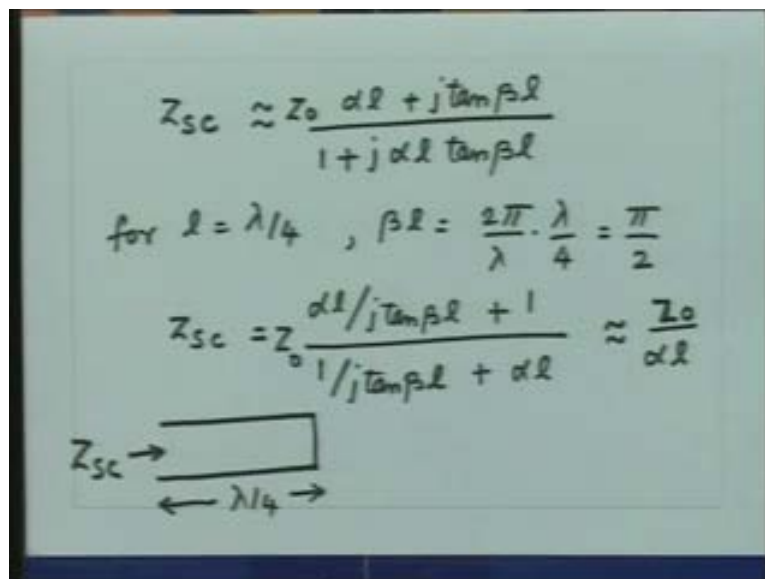 Zsc ≈ Z₀ (αl + j tan βl) / (1 + j αl tan βl)
for l = λ/4 , βl = 2π/λ · λ/4 = π/2
Zsc = Z₀ (αl/j tan βl + 1) / (1/j tan βl + αl) ≈ Z₀/αl
Zsc →
← λ/4 →